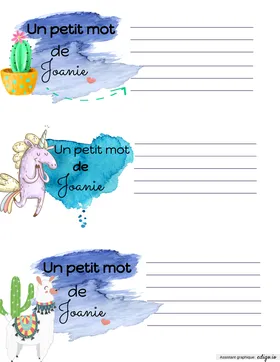 Un petit mot
de
Joanie
Un petit mot
de
Joanie
Un petit mot
de
Joanie
Assistant graphique: edige.ie